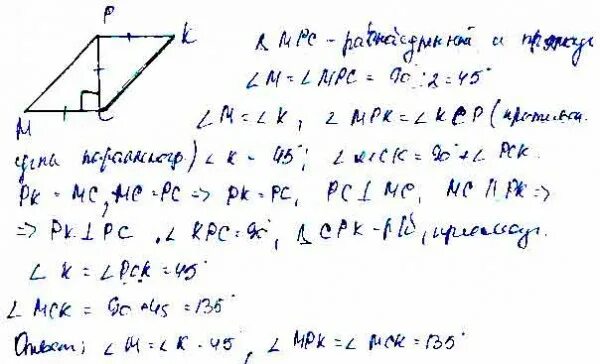 P
K
M
C
Δ MPC - равнобедренный и прямоуг
∠M = ∠MPC = 90° : 2 = 45°
∠M = ∠K, ∠MPK = ∠KCP (противоп.
углы параллелогр.) ∠K = 45°; ∠MCK = 90° + ∠PCK.
PK = MC, MC = PC => PK = PC, PC ⊥ MC, MC || PK =>
=> PK ⊥ PC, ∠KPC = 90°, Δ CPK - р/б, прямоуг.
∠K = ∠PCK = 45°
∠MCK = 90 + 45 = 135°
Ответ: ∠M = ∠K = 45°, ∠MPK = ∠MCK = 135°